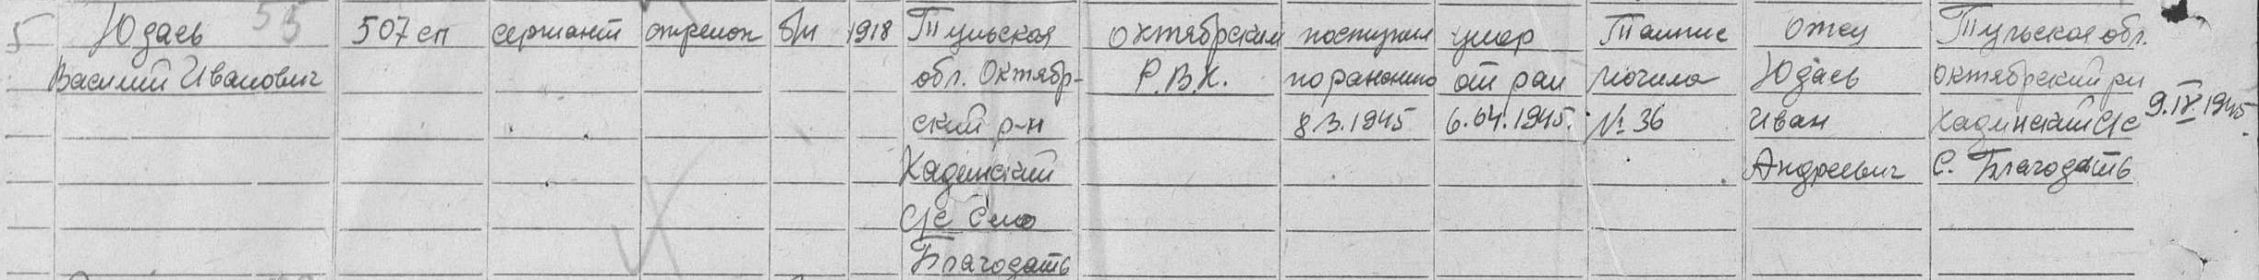 5 Юдаев 55 507 сп сержант стрелок б/п 1918 Тульская Октябрский поступил умер Таппис Отец Тульская обл.
Василий Иванович обл. Октябр- Р.В.К. по ранению от ран могила Юдаев Октябрский р-н
ский р-н 8/3.1945 6.04.1945. № 36 Иван Хадинский с/с 9.IV.1945
Хадинский Андреевич С. Благодать
с/с Село
Благодать